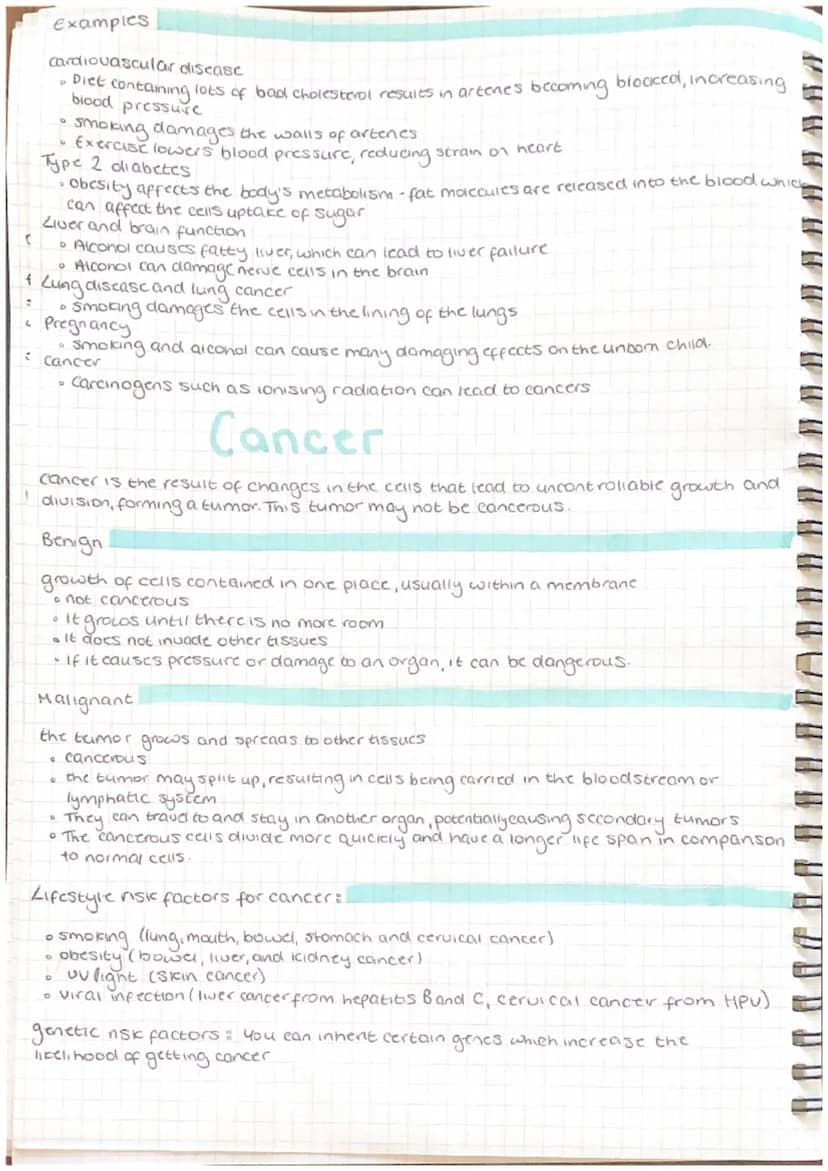 Examples
Cardiovascular disease
• Diet containing lots of bad cholesterol results in arteries becoming blocked, increasing
blood pressure
• smoking damages the walls of arteries
• Exercise lowers blood pressure, reducing strain on heart
Type 2 diabetes
• Obesity affects the body's metabolism - fat molecules are released into the blood which
can affect the cells uptake of sugar
Liver and brain function
• Alcohol causes fatty liver, which can lead to liver failure
• Alcohol can damage nerve cells in the brain
Lung disease and lung cancer
• smoking damages the cells in the lining of the lungs
Pregnancy
• smoking and alcohol can cause many damaging effects on the unborn child.
Cancer
• Carcinogens such as ionising radiation can lead to cancers
Cancer
Cancer is the result of changes in the cells that lead to uncontrollable growth and
division, forming a tumor. This tumor may not be cancerous.
Benign
growth of cells contained in one place, usually within a membrane
• not cancerous
• It grows until there is no more room
• It does not invade other tissues
• If it causes pressure or damage to an organ, it can be dangerous.
Malignant
the tumor grows and spreads to other tissues
• cancerous
• the tumor may split up, resulting in cells being carried in the bloodstream or
lymphatic system
• They can travel to and stay in another organ, potentially causing secondary tumors
• The cancerous cells divide more quickly and have a longer life span in comparison
to normal cells.
Lifestyle risk factors for cancer:
• smoking (lung, mouth, bowel, stomach and cervical cancer)
• obesity (bowel, liver, and kidney cancer)
• UV light (skin cancer)
• viral infection (liver cancer from hepatitis B and C, cervical cancer from HPV)
genetic risk factors: you can inherit certain genes which increase the
likelihood of getting cancer